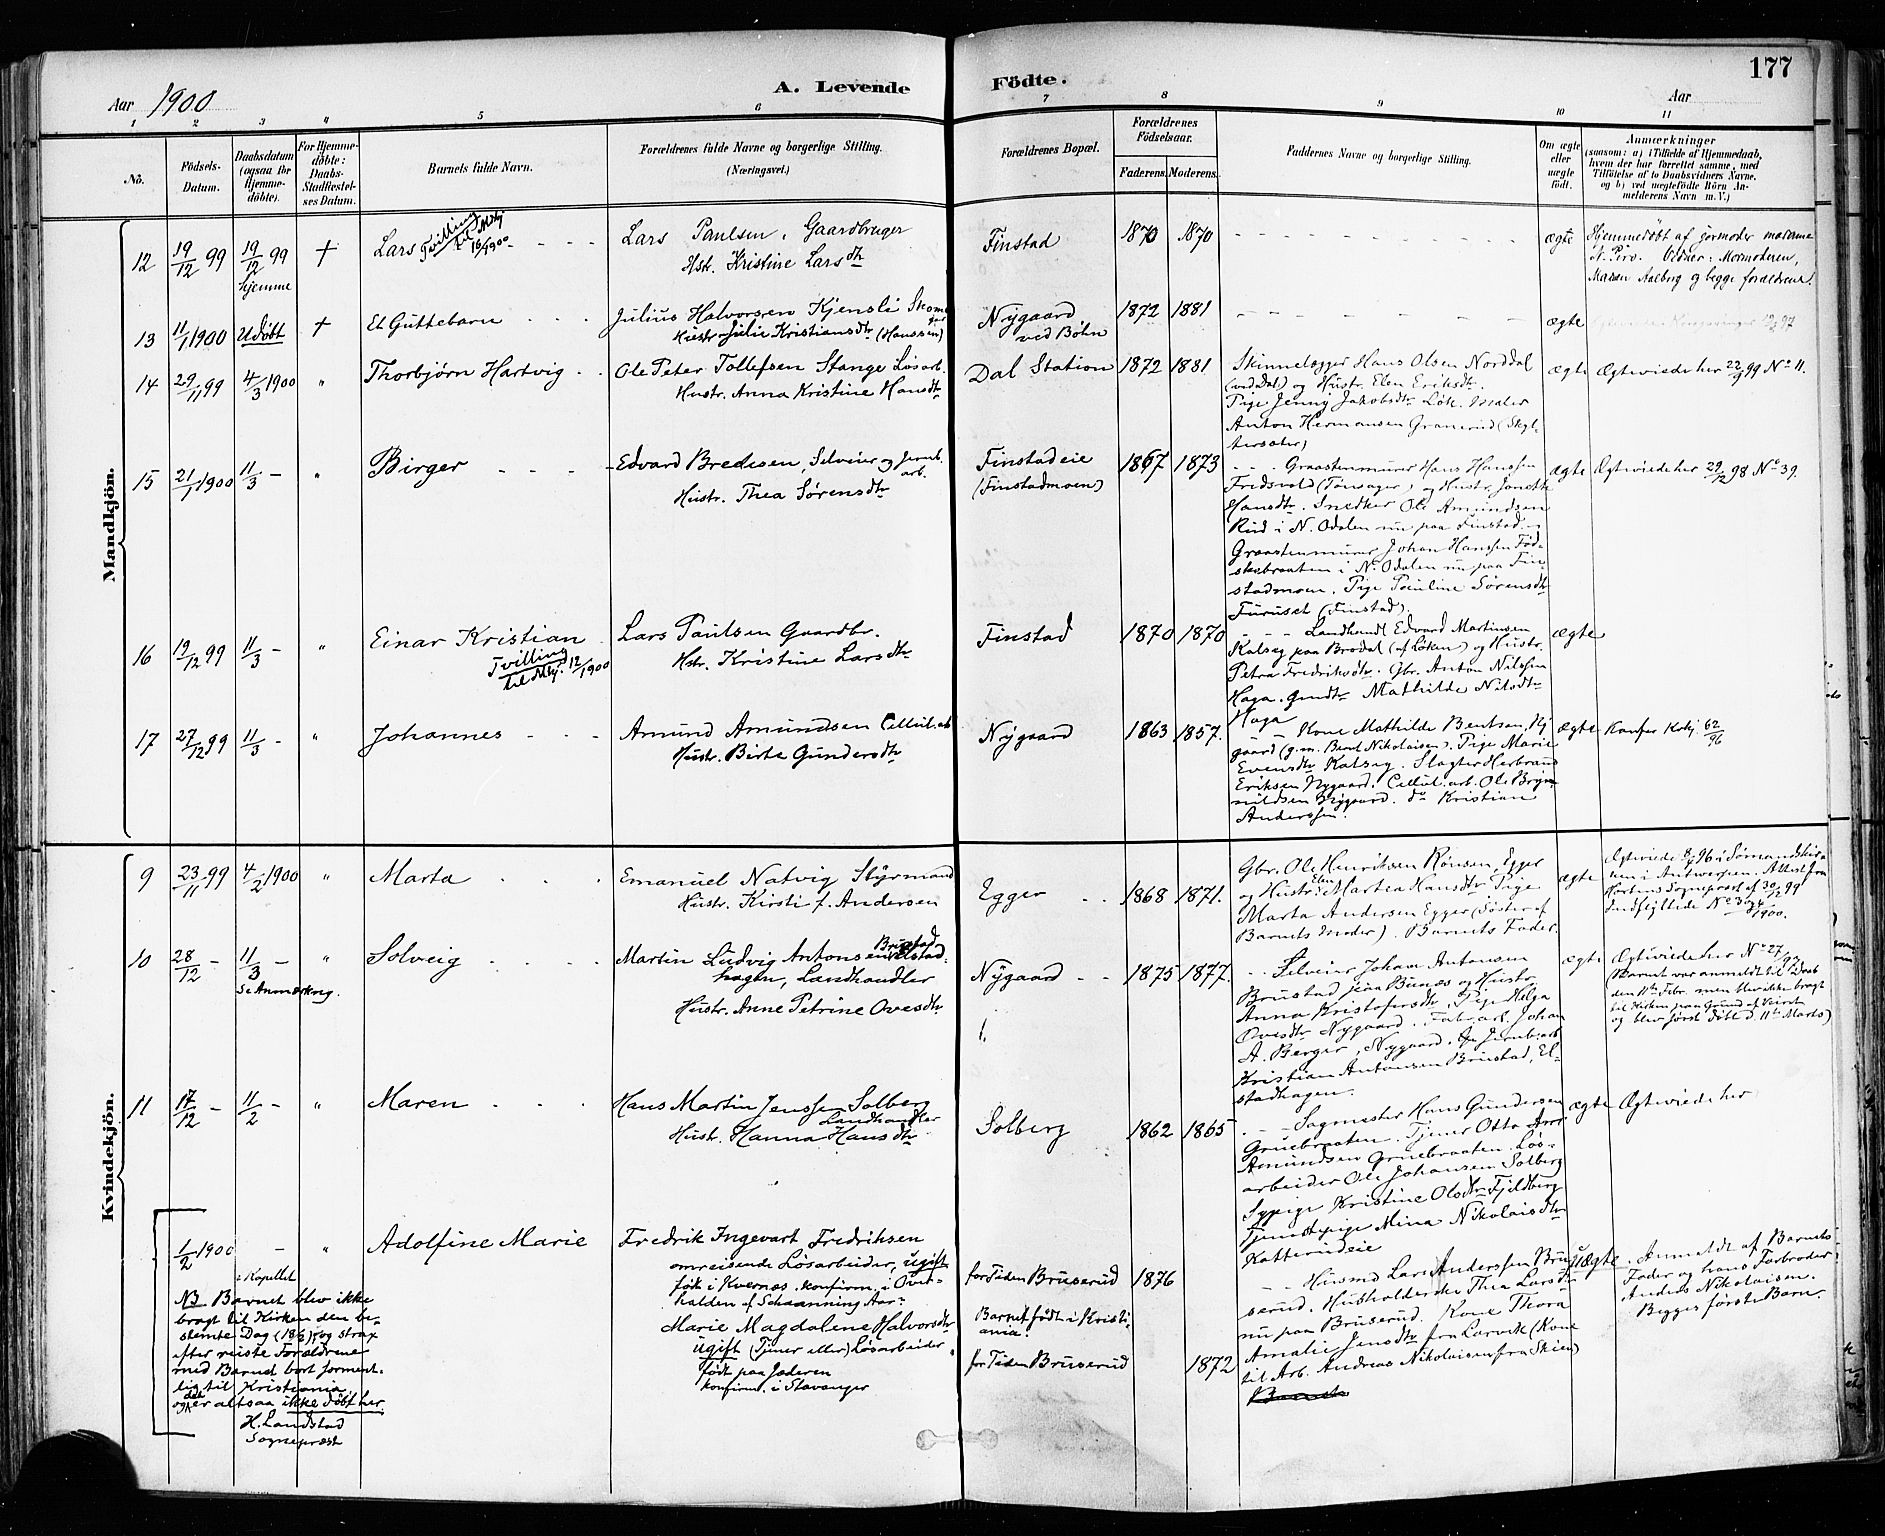 177
Aar 1900
A. Levende Fødte.
Aar
1 2 3 4 5 6 7 8 9 10 11
No.
Fødsels-
Datum.
Daabsdatum
(ogsaa for
Hjemme-
døbte).
For Hjemme-
døbte:
Daabs-
Stadfæstel-
ses Datum.
Barnets fulde Navn.
Forældrenes fulde Navne og borgerlige Stilling.
(Næringsvei.)
Forældrenes Bopæl.
Forældrenes
Fødselsaar.
Faderens. Moderens.
Faddernes Navne og borgerlige Stilling.
Om ægte
eller
uægte
født.
Anmærkninger
(saasom: a) i Tilfælde af Hjemmedaab,
hvem der har forrettet samme, med
Tilføielse af to Daabsvidners Navne,
og b) ved uægtefødte Børn An-
melderens Navn m. V.)
Mandkjön.
12 19/12 99 19/12 99 hjemme † Lars Tvilling til Mkj 16/1900
Lars Paulsen, Gaardbruger
Hstr. Kristine Larsdtr
Finstad 1870 1870 ægte
Hjemmedøbt af jormoder madame
Vidner: Mormoderen,
Maren Aalborg og begge forældrene.
13 11/1 1900 Udøbt † Et Guttebarn
Julius Halvorsen Kjensli Skom
Hustr Julie Kristiansdtr (Hanssen)
Nygaard
ved Bøhn
1872 1881 ægte
14 29/11 99 4/3 1900 " Thorbjørn Hartvig
Ole Peter Tollefsen Stange Løsarb.
Hustr. Anna Kristine Hansdtr
Dal Station 1872 1881
Skinnelægger Hans Olsen Norddal
(ved Dal) og Hustr. Elen Eriksdtr.
Pige Jenny Jakobsdtr Løk. Maler
Anton Hermansen Granerud (Skyt-
tersæter)
ægte Ægtviede her 22/9 99 No 11.
15 21/1 1900 11/3 - " Birger
Edvard Bredesen, Selveier og Jernb.
arb.
Hustr. Thea Sørensdtr
Finstadeie
(Finstadmoen)
1867 1873
Graastensmurer Hans Hanssen
Fredsvold (Tønsager) og Hustr. Janette
Hansdtr. Snedker Ole Amundsen
Rud i N. Odalen nu paa Finstad.
Graastenmurer Johan Hanssen Fød-
skebraaten i N. Odalen nu paa Fin-
stadmoen. Pige Pauline Sørensdtr
Furuset (Finstad).
ægte Ægtviede her 29/12 98 No 39.
16 19/12 99 11/3 - " Einar Kristian
Tvilling
til Mkj. 12/1900
Lars Paulsen Gaardbr.
Hstr. Kristine Larsdtr
Finstad 1870 1870
Landhandl Edvard Martinsen
Kalseg paa Brødal (af Løken) og Hustr.
Petra Fredriksdtr. Gbr. Anton Nilssen
Haga. Gmdtr Mathilde Nilsdtr
Haga
ægte
17 27/12 99 11/3 - " Johannes
Amund Amundsen Cellul. arb
Hustr. Birte Gundersdtr
Nygaard 1863 1857.
Kone Mathilde Bentsen, Ny
gaard (g.m. Bernt Nikolaisen). Pige Marie
Evensdtr Kalseg. Slagter Herbrand
Eriksen Nygaard. Cellul. arb. Ole Bryn-
nildsen Nygaard. do Kristian
Anderssen.
ægte Kanfer Kvkj. 62/96
Kvindekjön.
9 23/11 99 4/2 1900 " Marta
Emanuel Natvig Styrmand
Hustr. Kirsti f. Andersen
Egger 1868 1871.
Gbr. Ole Henriksen Rønsen, Egger
og Hustr: Martea Hansdtr Pige
Marta Andersen Egger (Søster af
Barnets Moder). Barnets Fader.
ægte
Ægtviede 8/4 96 i Sømandskirk-
en i Antwerpen. Attest fra
Hortens Sognepræst af 30/12 99
Indflyttede No 3 1900.
10 28/12 - 11/3 - " Solveig
Se Anmærkng.
Martin Ludvig Antonsen Brustad Elstad-
hagen, Landhandler
Hustr. Anne Petrine Ovesdtr
Nygaard 1875 1877.
Selveier Johan Antonsen
Brustad paa Bunes og Hustr
Anna Kristofersdtr, Pige Helga
Ovesdtr Nygaard. Fabr.arb. Johan
A. Berger, Nygaard. Jernb.arb
Kristian Antonsen Brustad, El-
stadhagen.
ægte
Ægtviede her No 27/97
(Barnet var anmeldt til Daab
den 11te Febr. men blev ikke bragt
til Kirken paa Grund af Veiret
og blev først døbt d. 11te Marts)
11 17/12 - 11/2 - " Maren
Hans Martin Jenssen Solberg
Landhandler
Hustr. Hanna Hansdtr
Solberg 1862 1865
Sagmester Hans Gundersen
Gruebraaten. Tjener Otto
Amundsen Gruebraaten. Løs-
arbeider Ole Johansen Solberg
Sypige Kristine Olsdtr Fjeldberg
Tjenstepige Mina Nikolaisdtr
Katterudeie
ægte Ægtviede her
1/2 1900 - " Adolfine Marie
Fredrik Ingevart Fredriksen
omreisende Løsarbeider, ugift
født i Kvernes. konfirm. i Over-
halden af Schaanning Aar?
Marie Magdalene Halvorsdtr
ugift (Tjener eller) Løsarbeider
født paa Jæderen
konfirm. i Stavanger
for Tiden Bruserud 1876
Barnet født i Kristi-
ania.
for Tiden Bruserud 1872
Husmd Lars Anderssen Bru-
serud. Husholderske Thea Larsdtr
nu paa Bruserud. Kone Thora
Amalie Jensdtr fra Larvik (Kone
til Arb. Andreas Nikolaisen fra Skien)
uægte
Anmeldt af Barnets
Fader og hans Farbroder
Anders Nikolaisen.
Begges første Barn.
i Kapellet
NB Barnet blev ikke
bragt til Kirken den be-
stemte Dag (18/2) og strax
efter reiste Forældrene
med Barnet bort forment-
lig til Kristiania
og er altsaa ikke døbt her.
H. Landstad
Sognepræst